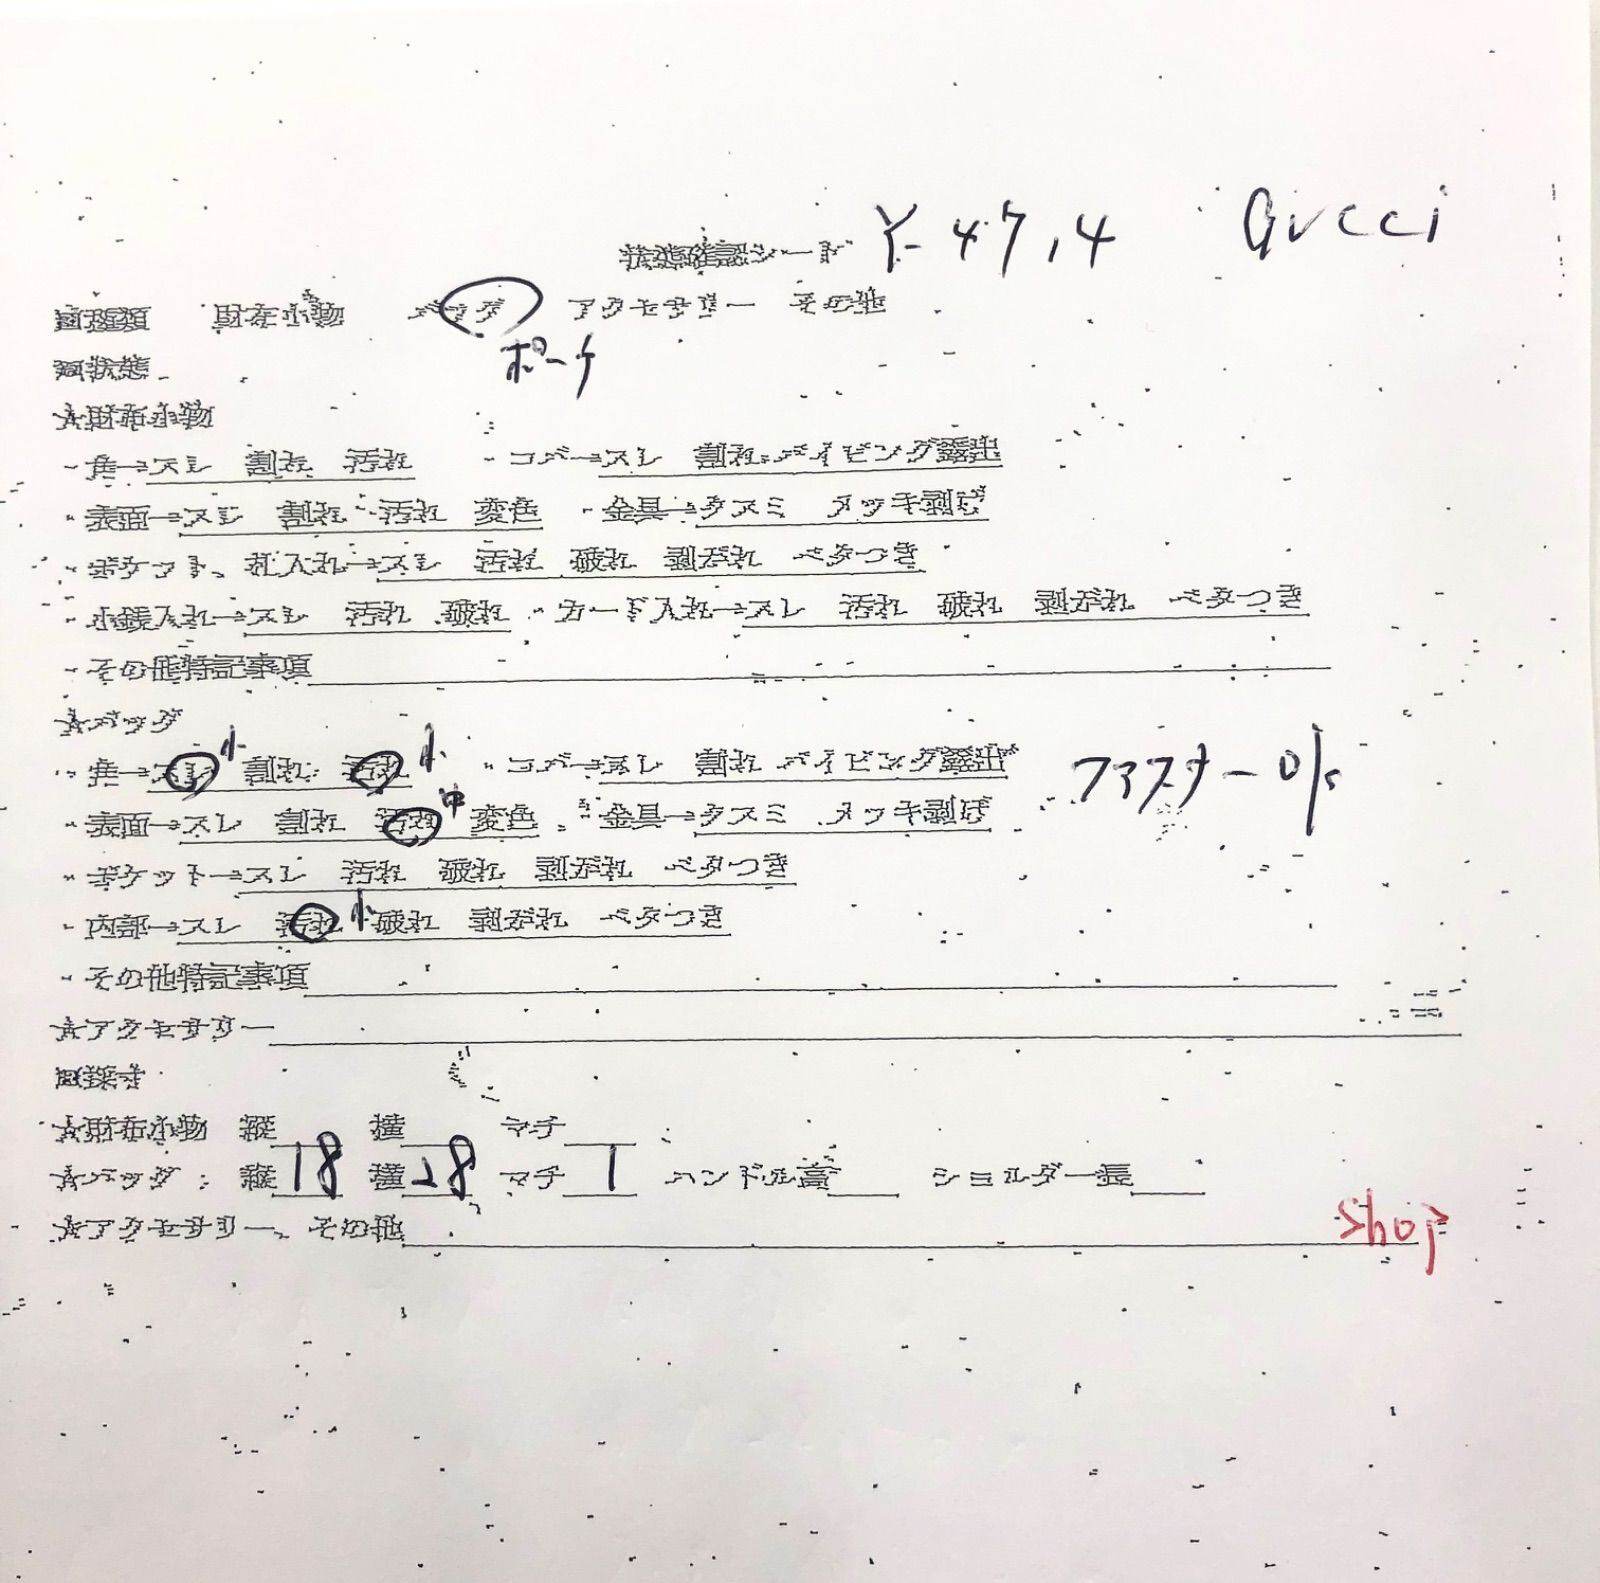 状態確認シート Y-47,4 Gucci
種類 財布小物 バッグ アクセサリー その他
ポーチ
状態
☆財布小物
・角→スレ 割れ 汚れ ・コバ→スレ 割れ パイピング露出
・表面→スレ 割れ 汚れ 変色 ・金具→クスミ メッキ剥げ
・ポケット、札入れ→スレ 汚れ 破れ 剥がれ ベタつき
・小銭入れ→スレ 汚れ 破れ ・カード入れ→スレ 汚れ 破れ 剥がれ ベタつき
・その他特記事項
☆バッグ
・角→スレ 小 割れ 汚れ 小 ・コバ→スレ 割れ パイピング露出
・表面→スレ 割れ 汚れ 中 変色 ・金具→クスミ メッキ剥げ ファスナー
・ポケット→スレ 汚れ 破れ 剥がれ ベタつき
・内部→スレ 汚れ 小 破れ 剥がれ ベタつき
・その他特記事項
☆アクセサリー
採寸
☆財布小物 縦 横 マチ
☆バッグ: 縦18 横28 マチ1 ハンドル高 ショルダー長
☆アクセサリー、その他 Shop